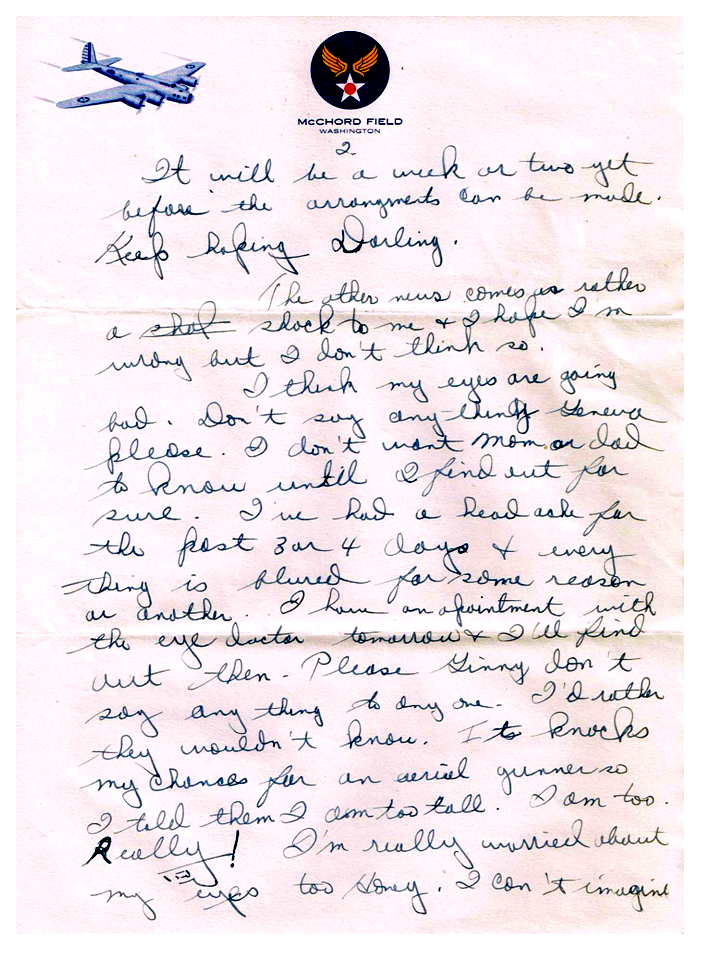 McCHORD FIELD
WASHINGTON
2
It will be a week or two yet
before the arrangments can be made.
Keep hoping Darling.
The other news comes as rather
a shot shock to me & I hope I'm
wrong but I don't think so.
I think my eyes are going
bad. Don't say any-thing Geneva
please. I don't want Mom or dad
to know until I find out for
sure. I've had a head ache for
the past 3 or 4 days & every
thing is blured for some reason
or another. I have an apointment with
the eye doctor tomorrow & I'll find
out then. Please Ginny don't
say any thing to any one. I'd rather
they wouldn't know. Its knocks
my chances for an aerial gunner so
I told them I am too tall. I am too.
Really!
I'm really worried about
my eyes too Honey. I can't imagine